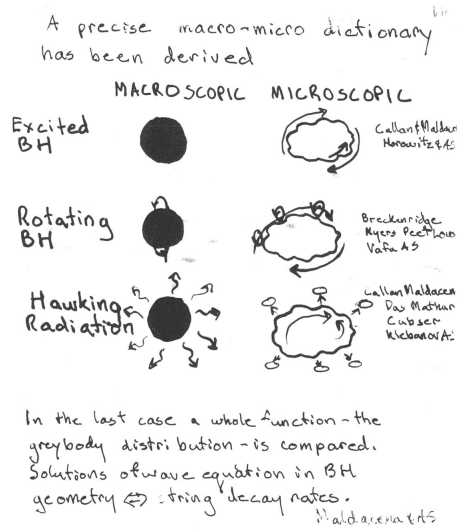 A precise macro-micro dictionary
has been derived
MACROSCOPIC MICROSCOPIC
Excited
BH
Callan & Maldac
Horowitz & AS
Rotating
BH
Breckenridge
Myers Peet Louis
Vafa AS
Hawking
Radiation
Callan Maldacen
Das Mathur
Gubser
Klebanov AS
In the last case a whole function - the
greybody distribution - is compared.
Solutions of wave equation in BH
geometry ⇔ string decay rates.
Maldacena & AS